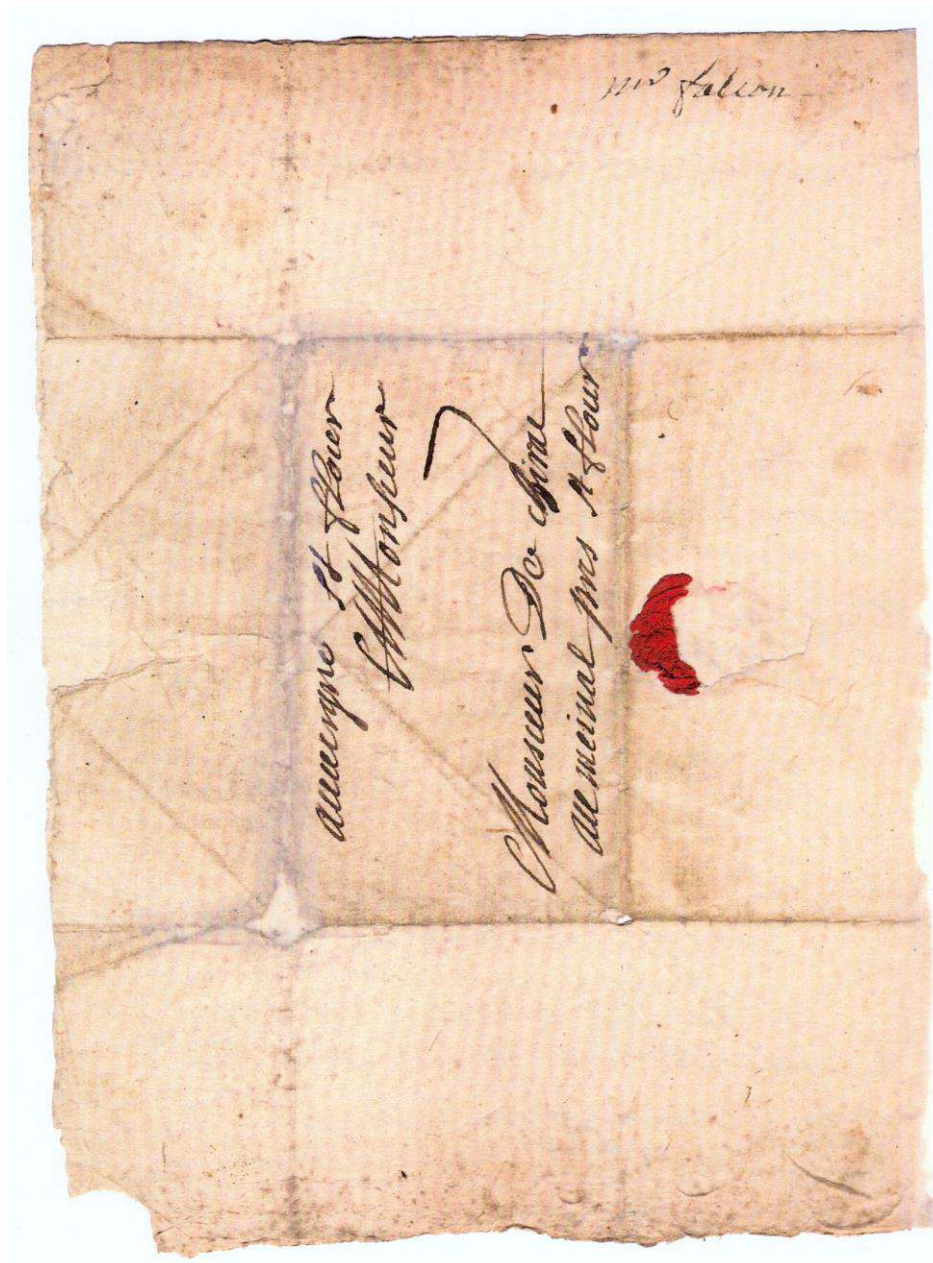 mr falcon
auuergne st flour
A Monsieur
Monsieur De chirac
au meinial pres st flour